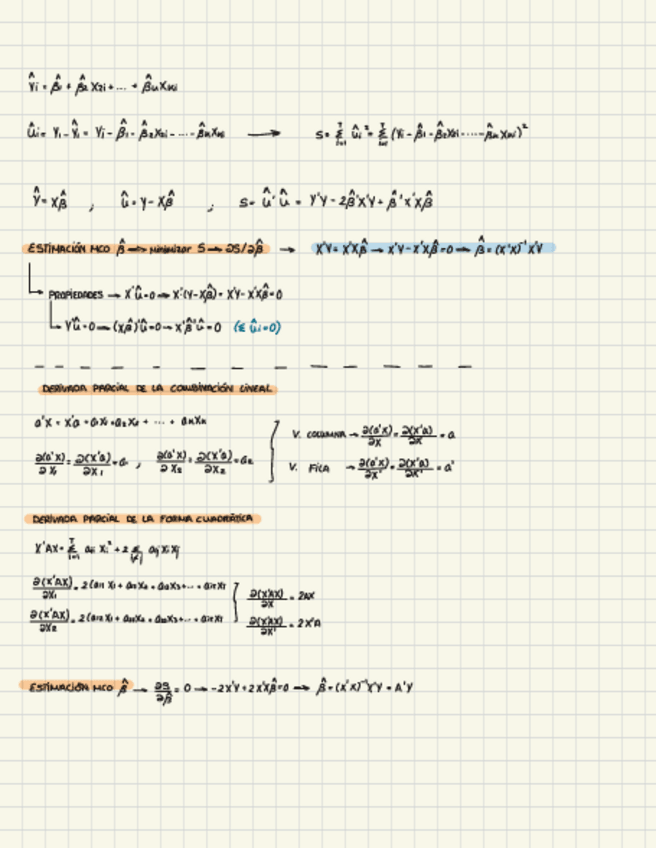 Ŷi = β̂1 + β̂2 X2i + ... + β̂k Xki
ûi = Yi - Ŷi = Yi - β̂1 - β̂2 X2i - ... - β̂k Xki → S = Σ ûi² = Σ (Yi - β̂1 - β̂2 X2i - ... - β̂k Xki)²
Ŷ = Xβ̂ , û = Y - Xβ̂ ; S = û'û = Y'Y - 2β̂'X'Y + β̂'X'Xβ̂
ESTIMACIÓN MCO β̂ → minimizar S → ∂S/∂β̂ → X'Y = X'Xβ̂ → X'Y - X'Xβ̂ = 0 → β̂ = (X'X)⁻¹ X'Y
PROPIEDADES → X'û = 0 → X'(Y - Xβ̂) = X'Y - X'Xβ̂ = 0
Ŷ'û = 0 → (Xβ̂)'û = 0 → X'β̂'û = 0 (Σ ûi = 0)
DERIVADA PARCIAL DE LA COMBINACIÓN LINEAL
a'X = X'a = a1X1 + a2X2 + ... + anXn
∂(a'X)/∂X1 = ∂(X'a)/∂X1 = a1 , ∂(a'X)/∂X2 = ∂(X'a)/∂X2 = a2
V. COLUMNA → ∂(a'X)/∂X = ∂(X'a)/∂X = a
V. FILA → ∂(a'X)/∂X' = ∂(X'a)/∂X' = a'
DERIVADA PARCIAL DE LA FORMA CUADRÁTICA
X'AX = Σ aii Xi² + 2 Σ aij Xi Xj
∂(X'AX)/∂X1 = 2(a11 X1 +
∂(X'AX)/∂X2 = 2(
∂(X'AX)/∂X = 2AX
∂(X'AX)/∂X' = 2X'A
ESTIMACIÓN MCO β̂ → ∂S/∂β̂ = 0 → -2X'Y + 2X'Xβ̂ = 0 → β̂ = (X'X)⁻¹X'Y = A'Y